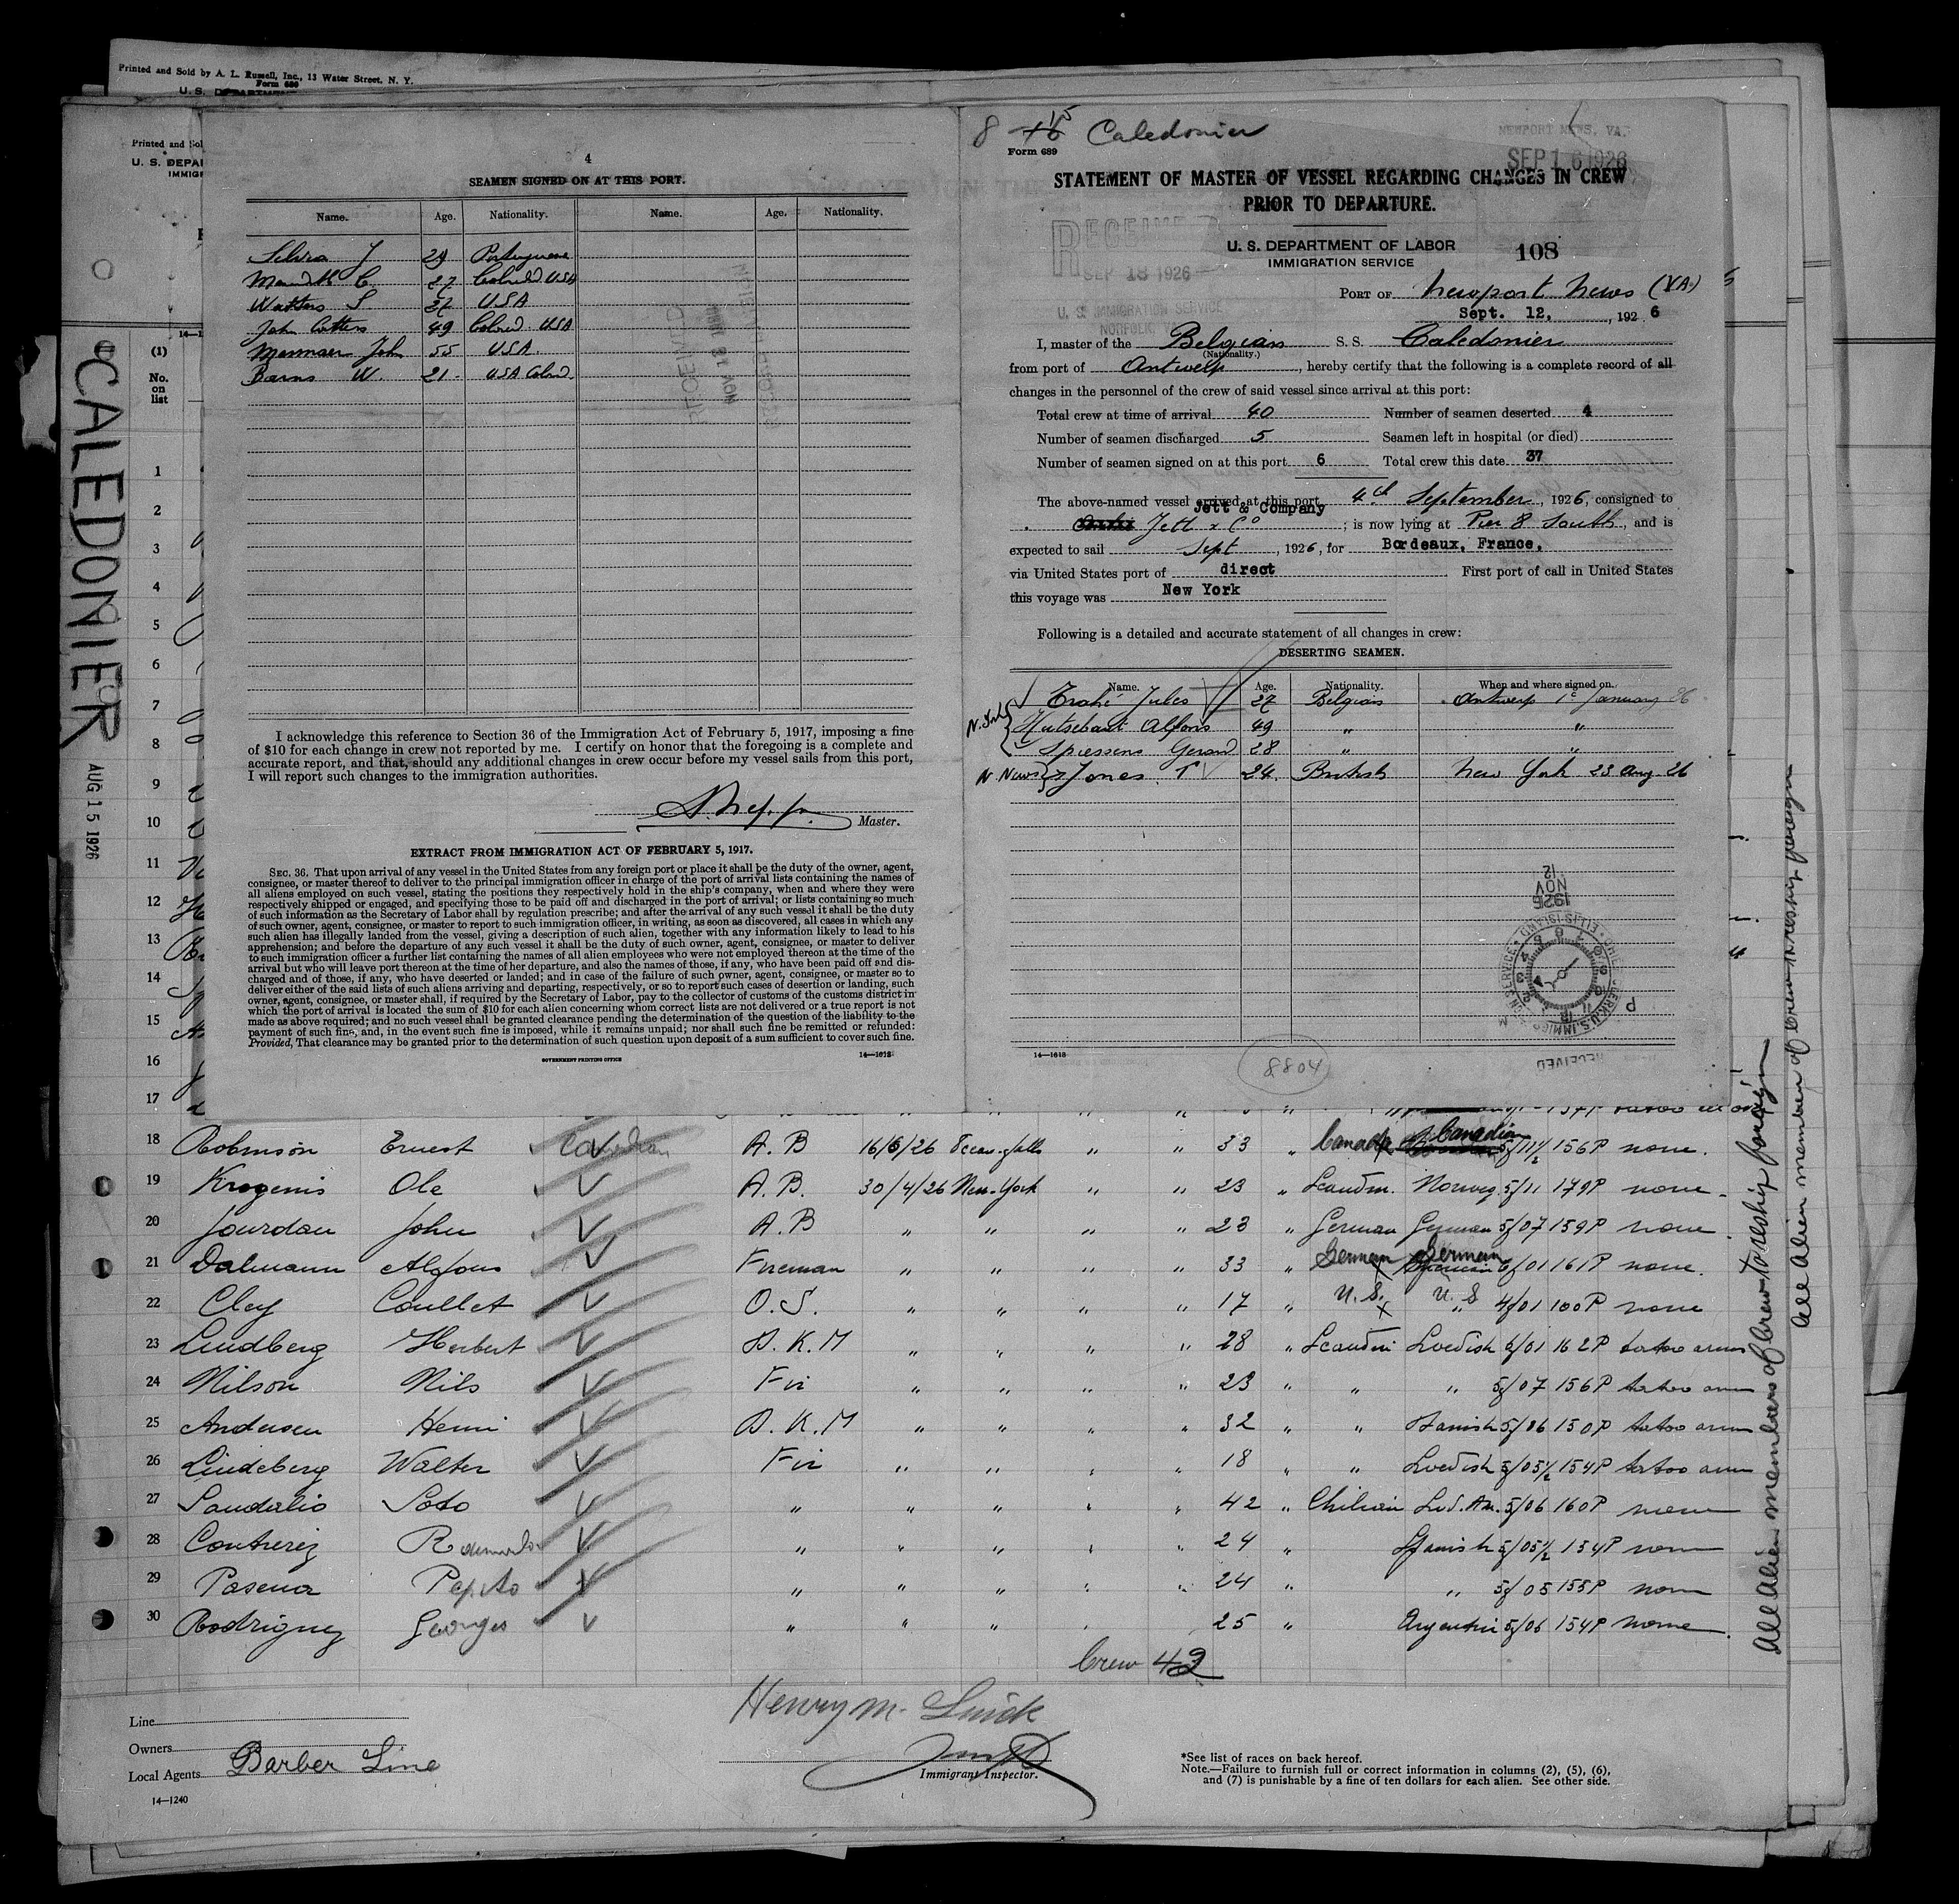 Printed and Sold by A. L. Russell, Inc., 13 Water Street, N. Y.
Form 689
U. S. DEPARTMENT
Printed and Sol
U. S. DEPAR
IMMIGR
14—1
(1)
No.
on
list
CALEDONIER
AUG 15 1926
1
2
3
4
5
6
7
8
9
10
11
12
13
14
15
16
17
4
SEAMEN SIGNED ON AT THIS PORT.
Name. Age. Nationality. Name. Age. Nationality.
Silvia J 29 Portuguese
C. 27 Colored USA
Watters S 27 USA
John Cotters 49 Colored USA
Merman John 55 USA
Barns W. 21 USA Colred
RECEIVED
NOV 12 1926
I acknowledge this reference to Section 36 of the Immigration Act of February 5, 1917, imposing a fine
of $10 for each change in crew not reported by me. I certify on honor that the foregoing is a complete and
accurate report, and that, should any additional changes in crew occur before my vessel sails from this port,
I will report such changes to the immigration authorities.
Master.
EXTRACT FROM IMMIGRATION ACT OF FEBRUARY 5, 1917.
SEC. 36. That upon arrival of any vessel in the United States from any foreign port or place it shall be the duty of the owner, agent,
consignee, or master thereof to deliver to the principal immigration officer in charge of the port of arrival lists containing the names of
all aliens employed on such vessel, stating the positions they respectively hold in the ship's company, when and where they were
respectively shipped or engaged, and specifying those to be paid off and discharged in the port of arrival; or lists containing so much
of such information as the Secretary of Labor shall by regulation prescribe; and after the arrival of any such vessel it shall be the duty
of such owner, agent, consignee, or master to report to such immigration officer, in writing, as soon as discovered, all cases in which any
such alien has illegally landed from the vessel, giving a description of such alien, together with any information likely to lead to his
apprehension; and before the departure of any such vessel it shall be the duty of such owner, agent, consignee, or master to deliver
to such immigration officer a further list containing the names of all alien employees who were not employed thereon at the time of the
arrival but who will leave port thereon at the time of her departure, and also the names of those, if any, who have been paid off and dis-
charged and of those, if any, who have deserted or landed; and in case of the failure of such owner, agent, consignee, or master so to
deliver either of the said lists of such aliens arriving and departing, respectively, or so to report such cases of desertion or landing, such
owner, agent, consignee, or master shall, if required by the Secretary of Labor, pay to the collector of customs of the customs district in
which the port of arrival is located the sum of $10 for each alien concerning whom correct lists are not delivered or a true report is not
made as above required; and no such vessel shall be granted clearance pending the determination of the question of the liability to the
payment of such fine, and, in the event such fine is imposed, while it remains unpaid; nor shall such fine be remitted or refunded:
Provided, That clearance may be granted prior to the determination of such question upon deposit of a sum sufficient to cover such fine.
GOVERNMENT PRINTING OFFICE 14—1618
8 15 Caledonier
Form 689
NEWPORT NEWS, VA.
SEP 16 1926
STATEMENT OF MASTER OF VESSEL REGARDING CHANGES IN CREW
PRIOR TO DEPARTURE.
RECEIVED
SEP 18 1926
U. S. IMMIGRATION SERVICE
NORFOLK,
U. S. DEPARTMENT OF LABOR
IMMIGRATION SERVICE
108
PORT OF Newport News (VA)
Sept. 12, , 192 6
I, master of the Belgian S. S. Caledonier
(Nationality.)
from port of Antwerp , hereby certify that the following is a complete record of all
changes in the personnel of the crew of said vessel since arrival at this port:
Total crew at time of arrival 40 Number of seamen deserted 4
Number of seamen discharged 5 Seamen left in hospital (or died)
Number of seamen signed on at this port 6 Total crew this date 37
The above-named vessel arrived at this port 4th September , 1926, consigned to
Jett & Company
Jett & Co ; is now lying at Pier 8 South , and is
expected to sail Sept , 1926, for Bordeaux, France,
via United States port of direct First port of call in United States
this voyage was New York
Following is a detailed and accurate statement of all changes in crew:
DESERTING SEAMEN.
Name. Age. Nationality. When and where signed on.
Jules 27 Belgian Antwerp 1e January 26
Hutsebaut Alfons 49 " "
Spiessens Gerard 28 " "
N News Jones T 24 British New York 23 Aug 26
1926
NOV
12
14—1618
8804
RECEIVED
18 Robinson Ernest Canadian A. B 16/6/26 Ocean falls " " 33 " Canada Canadian 5/11½ 156P none.
19 Krogenis Ole A. B. 30/4/26 New-York " " 23 " Scandin. Norweg. 5/11 179P none
20 Jourdan John A. B " " " " 23 " German German 5/07 159P none
21 Dalmann Alfons Fireman " " " " 33 " German German 6/01 161P none.
22 Cley Coullet O. S. " " " " 17 " U. S. U. S 4/01 100P none
23 Lindberg Herbert D. K. M " " " " 28 " Scandin Swedish 6/01 162P tatoo arms
24 Nilson Nils Fir " " " " 23 " " " 5/07 156P tatoo arm
25 Andersen Henri D. K. M " " " " 32 " " Danish 5/06 150P tatoo arm
26 Lindeberg Walter Fir " " " " 18 " " Swedish 5/05½ 154P tatoo arm
27 Sandalio Soto " " " " " 42 " Chilian Sud. Am. 5/06 160P none
28 Contrerez " " " " " 24 " Spanish 5/05½ 154P none
29 Pasena Pepito " " " " " 24 " " 5/05 155P none
30 Rodriguez Georges " " " " 25 " Argentin 5/06 154P none.
Crew 42
Henry M.
Line
Owners
Local Agents Barber Line
Immigrant Inspector.
14—1240
*See list of races on back hereof.
Note.—Failure to furnish full or correct information in columns (2), (5), (6),
and (7) is punishable by a fine of ten dollars for each alien. See other side.
All Alien members of Crew to reship foreign
All Alien member of Crew to reship foreign